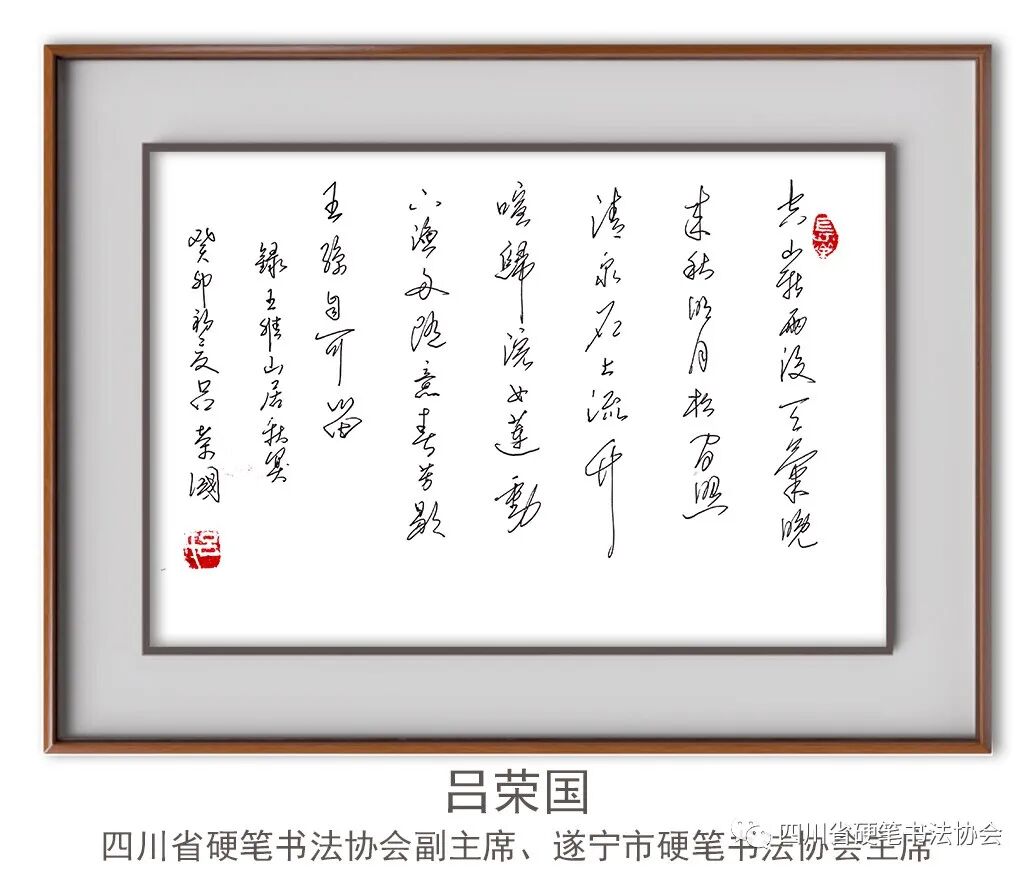 空山新雨後天氣晚
来秋明月松間照
清泉石上流竹
喧歸浣女蓮動
下漁舟隨意春芳歇
王孫自可留
録王維山居秋冥
癸卯初夏吕荣國
吕荣国
四川省硬笔书法协会副主席、遂宁市硬笔书法协会主席
四川省硬笔书法协会